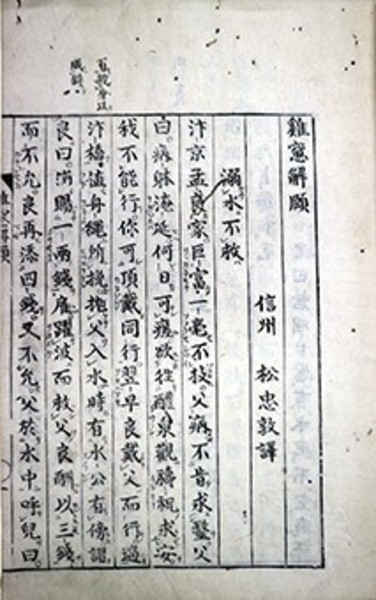 雞窓解頤
信州 松忠敦譯
溺水不救
汴京孟良家巨富一毫不拔父病不肯求醫父
白病躰淹延何日可瘥欲往醴泉觀禱祝求安
我不能行你可頂戴同行翌早良戴父而行過
汴橋值舟繩所挽拖父入水時有水公在傍謂
良曰消賜一兩錢雇躍波而救父良酬以三錢
而不允良再添四錢又不允父於水中呼兒曰